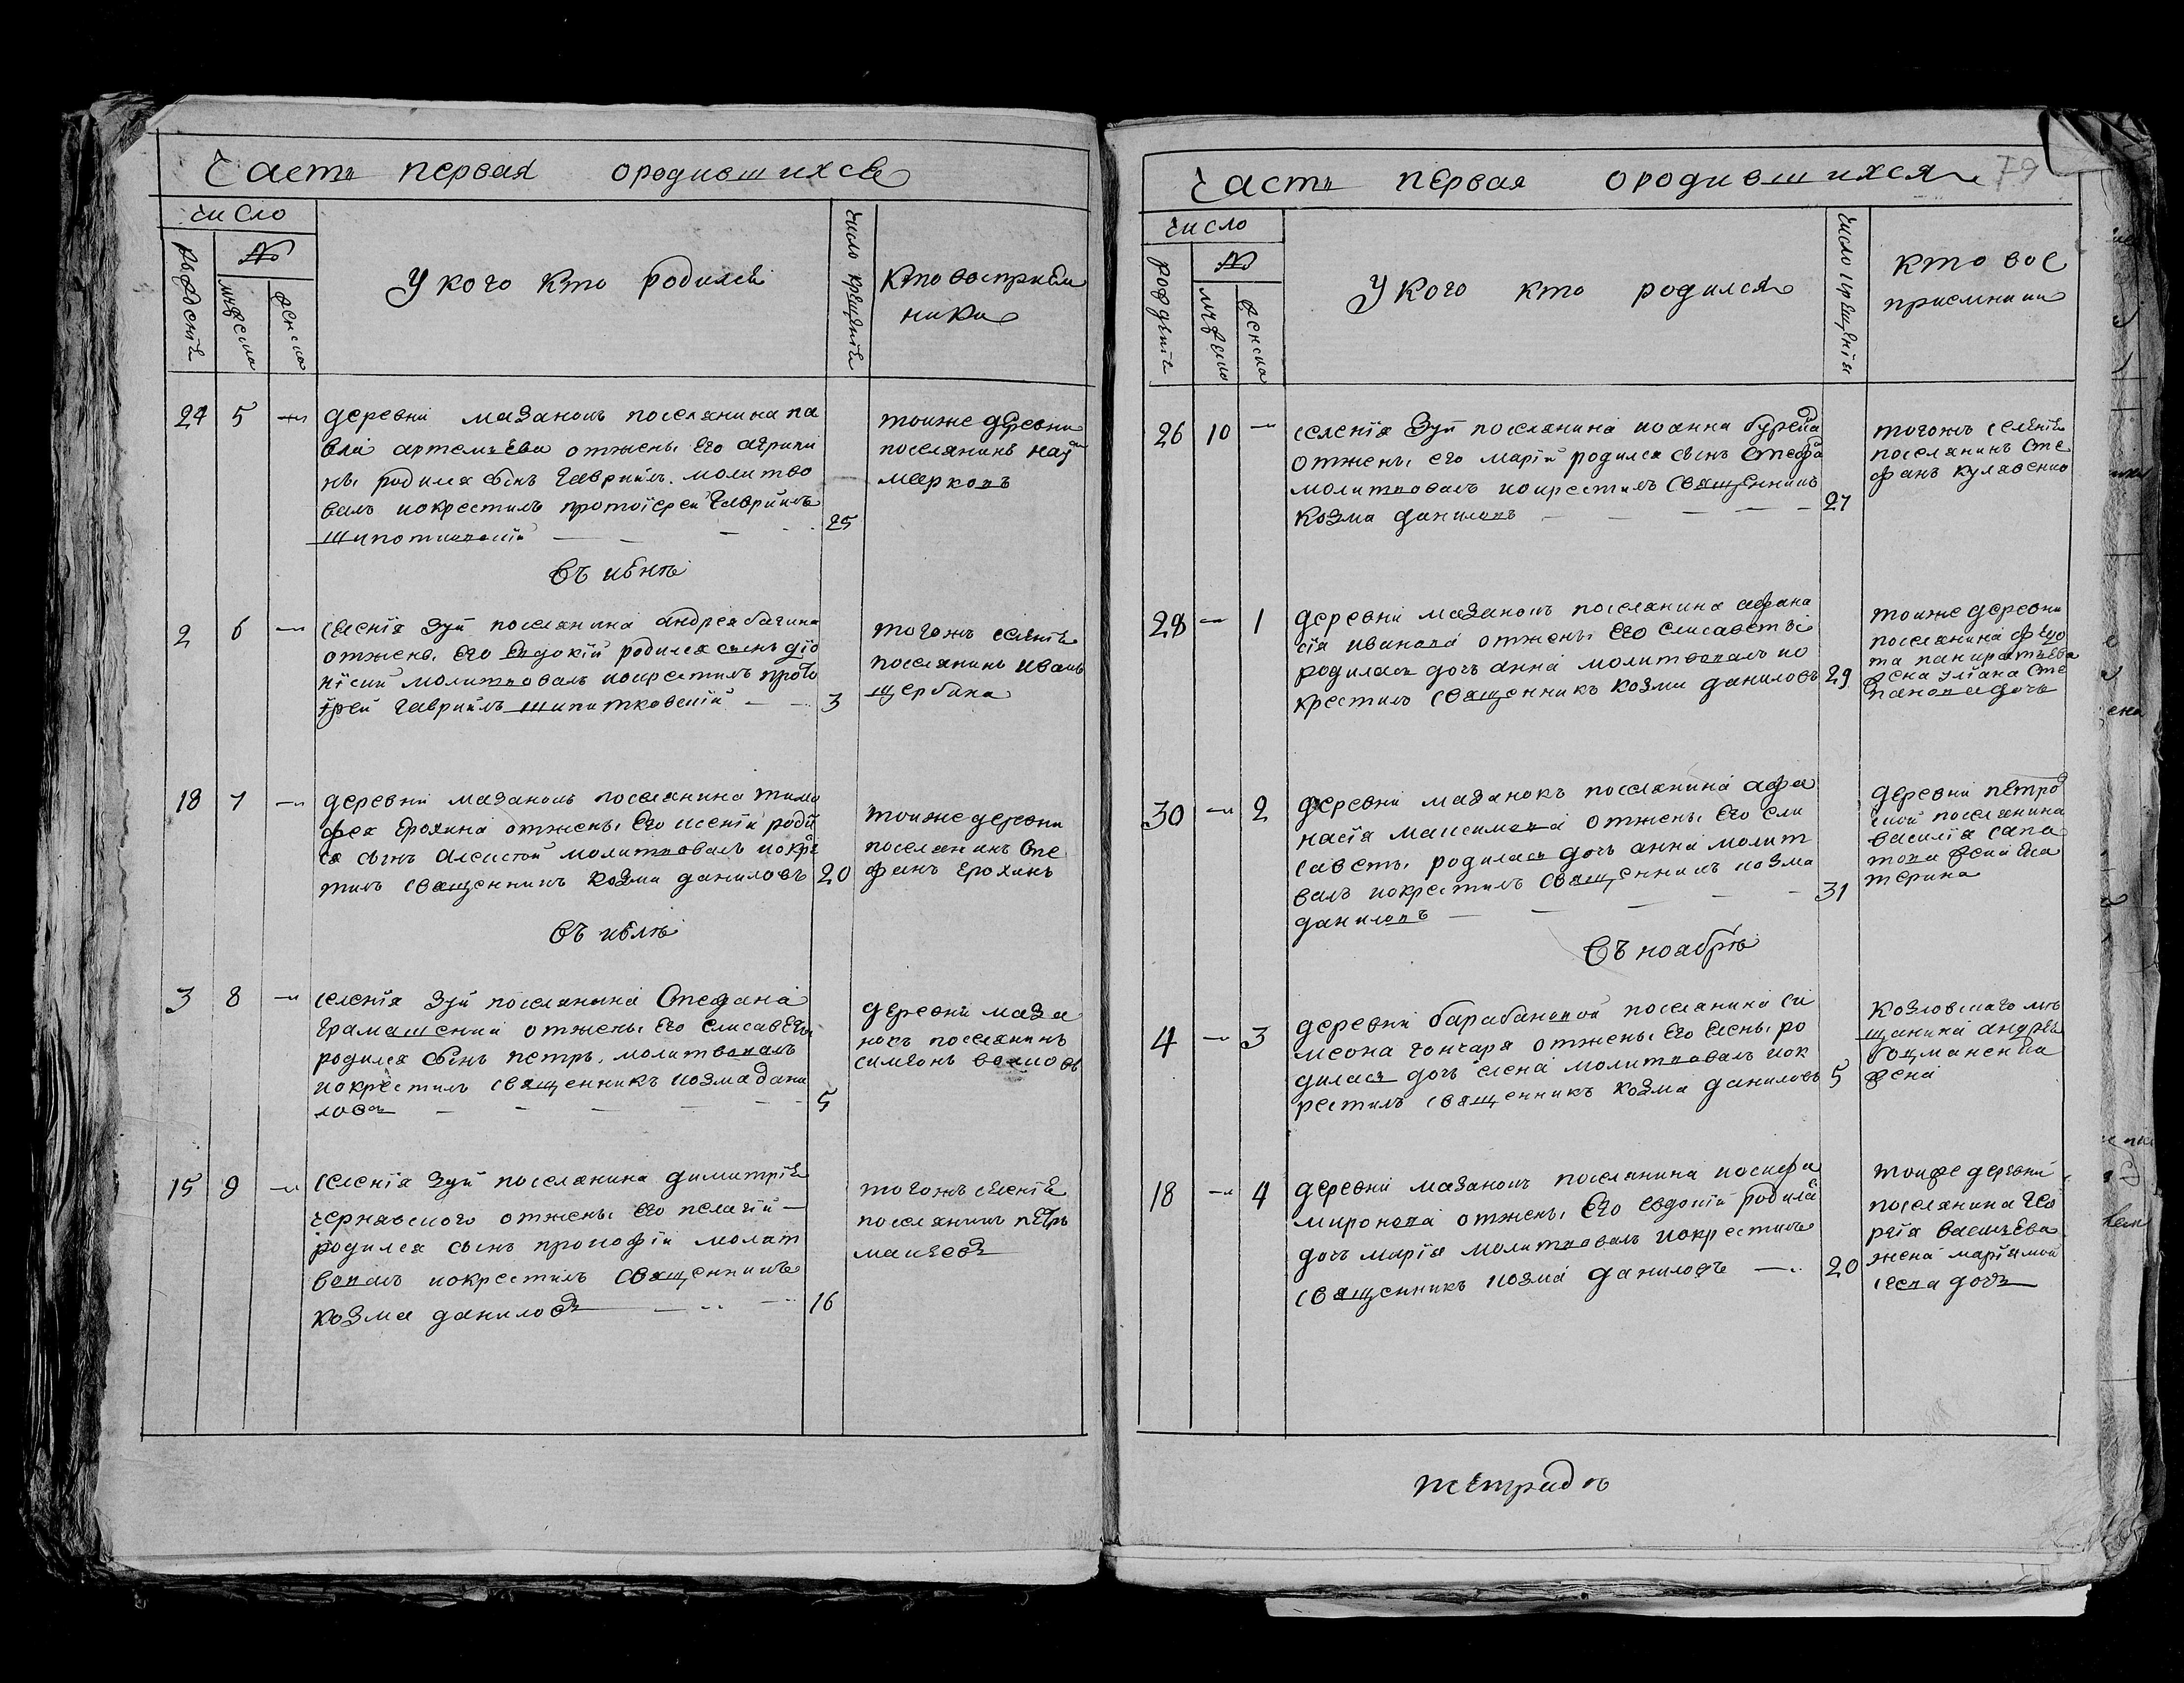 Часть первая ородившихся
число
№
рожденіе
мужеска
женска
У кого кто родился
число крещенія
Кто воспріем
ники
24 5 деревни мазанокъ поселянина па
вла артемьева отжены его агрипи
ны родился сынъ гавріилъ молитво
валъ иокрестилъ протоіерей гавріилъ
25
тоиже деревни
поселянинъ
марковъ
Въ июне
2 6 селенія Зуи поселянина андрея багина
отжены его Евдокіи родился сынъ діо
нісий молитвовалъ иокрестилъ прото
ірей гавриилъ шипитковскій 3
тогожъ селенія
поселянинъ иванъ
щербина
18 7 деревни мазанокъ поселянина тимо
фея Ерохина отжены Его ксеніи роди
ся сынъ алексей молитвовалъ иокре
тилъ священникъ козма даниловъ 20
тоиже деревни
поселянинъ Сте
фанъ Ерохинъ
Въ июле
3 8 селенія Зуи поселянина Стефана
Ерамашенка отжены Его Елисаветы
родился сынъ петръ молитвовалъ
иокрестилъ священникъ козма дани
ловъ 5
деревни маза
нокъ поселянинъ
симеонъ волковъ
15 9 селенія Зуи поселянина димитрія
чернявского отжены Его пелагіи
родился сынъ прокофіи молит
вовалъ иокрестилъ священникъ
козма даниловъ 16
тогожъ селенія
поселянинъ петръ
макѣевъ
Часть первая ородившихся 79
число
№
рожденіе
мужеско
женска
У Кого кто родился
число крещенія
кто вос
приемники
26 10 селенія Зуи поселянина иоанна
отжены его маріи родился сынъ Стефа
молитвовалъ иокрестилъ Священникъ
Козма даниловъ 27
тогожъ селенія
поселянинъ Сте
фанъ кулявенко
28 1 деревни мазанокъ поселянина афана
сія иванова отжены Его Елисаветы
родилась дочъ анна молитвовалъ ио
крестилъ священникъ козма даниловъ 29
тоиже деревни
поселянина федо
та панкратьева
жена уліана Сте
панова дочь
30 2 деревни мазанокъ поселянина афа
насія максимова отжены Его Ели
саветы родилась дочъ анна молит
валъ иокрестилъ священникъ козма
даниловъ 31
деревни петро
ской поселянина
василія сапа
това жена Ека
терина
Въ ноябре
4 3 деревни барабановой поселянина си
меона гончара отжены Его Елены ро
дилась дочъ елена молитвовалъ иок
рестилъ священникъ козма даниловъ 5
козловскаго мѣ
щанина андрея
боцманенка
жена
18 4 деревни мазанокъ поселянина иосифа
миронова отжены Его Евдокіи родила
дочъ марія молитвовалъ иокрестилъ
священникъ козма даниловъ 20
тоиже деревни
поселянина гео
ргія васильева
жена марія мои
сеева дочъ
тетрадь